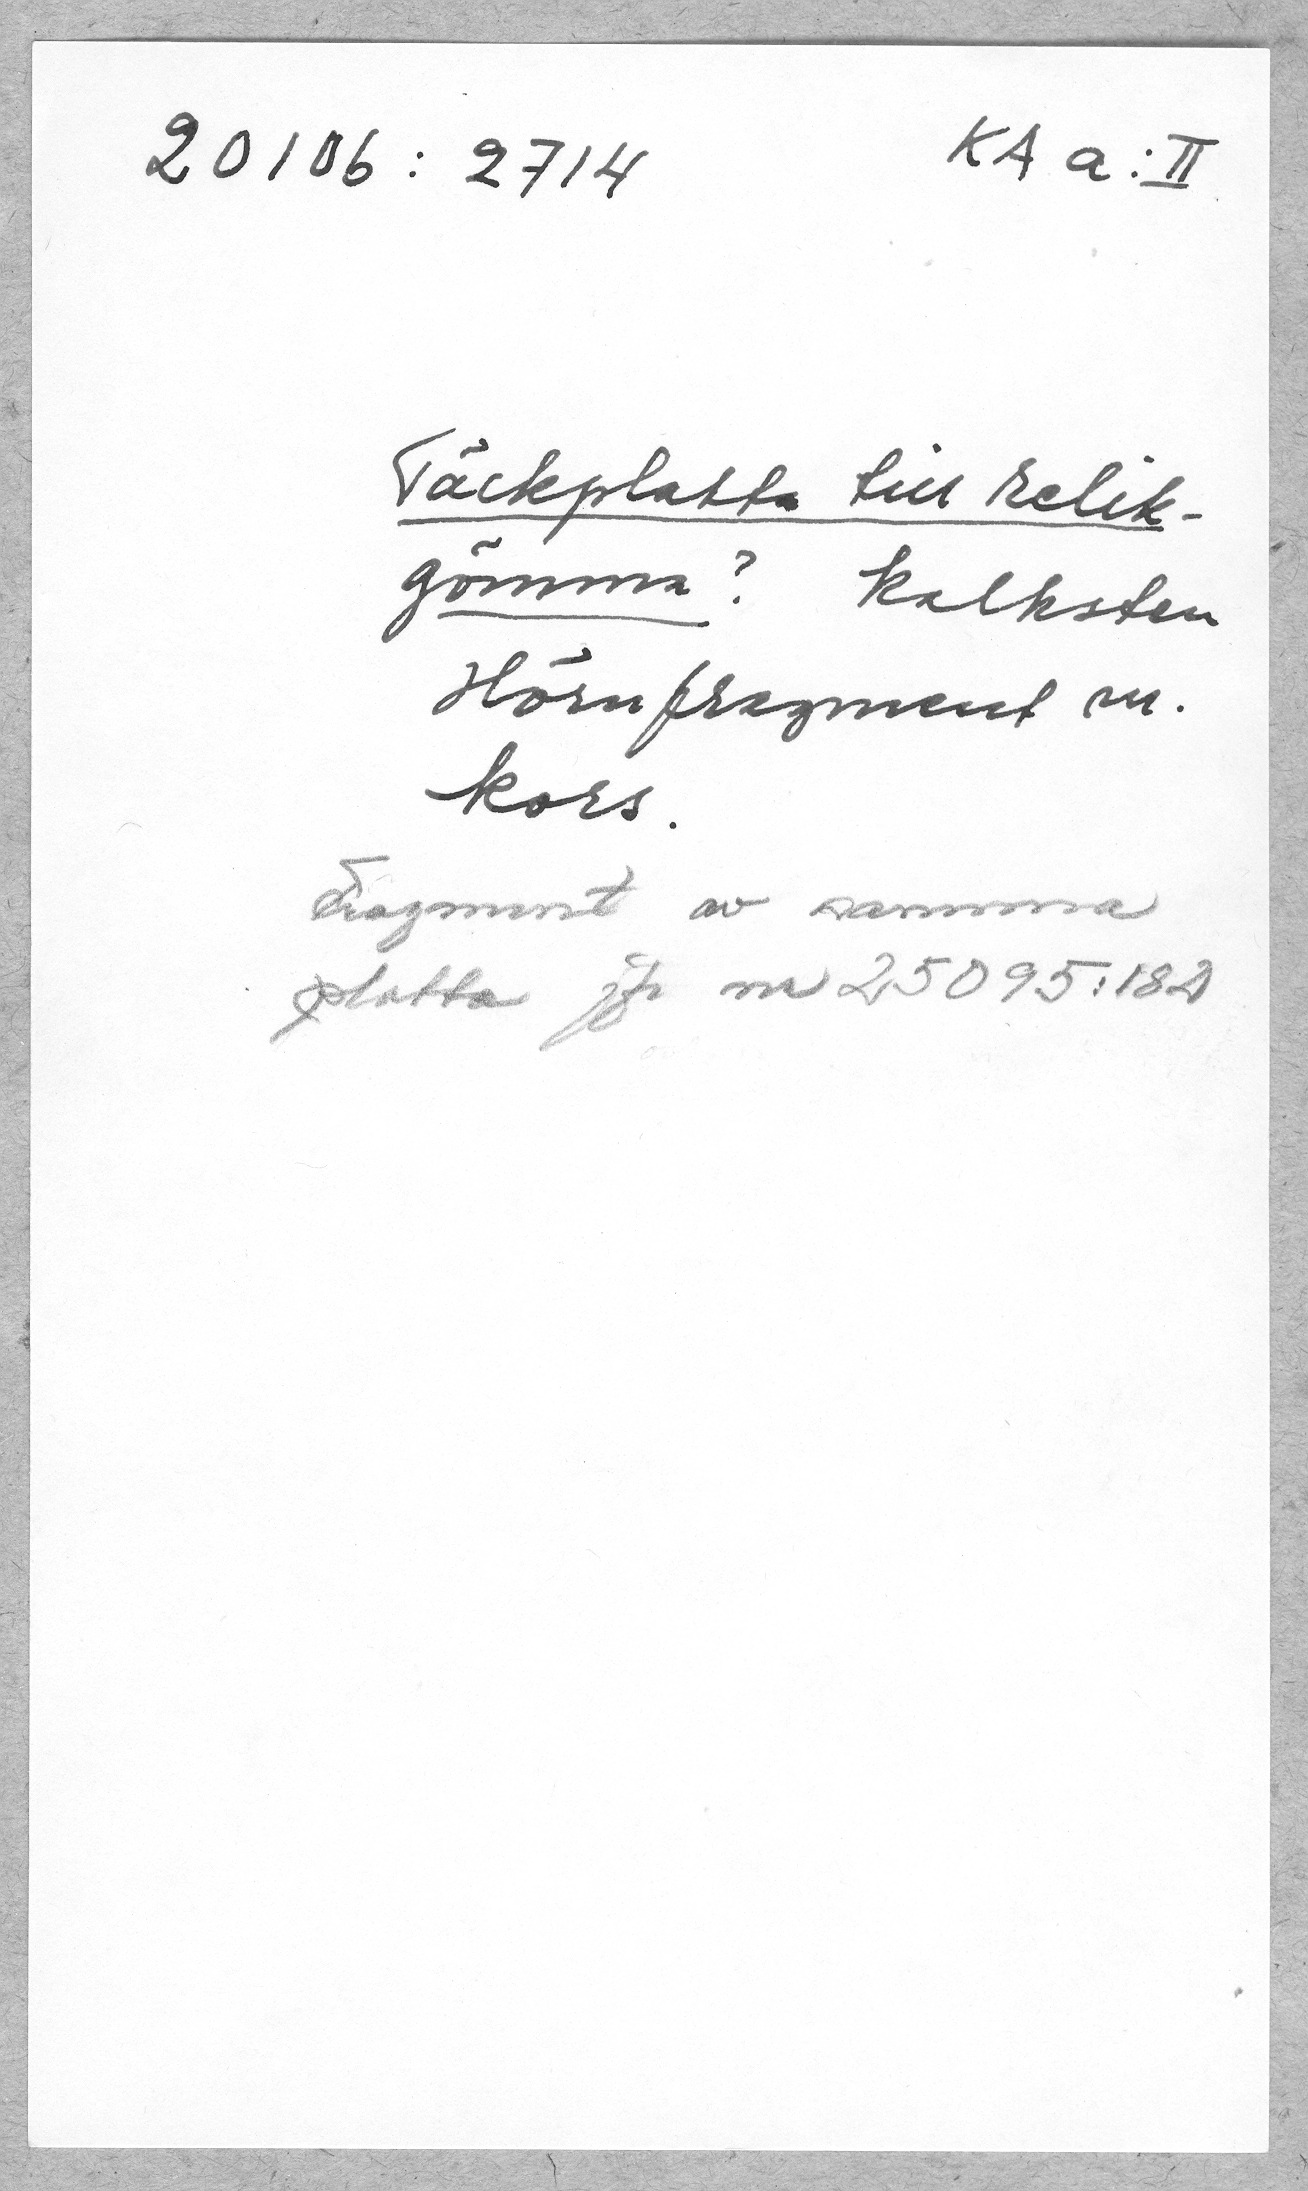 20106:2714 KA a:II
Täckplatta till relik-
gömma? kalksten
Hörnfragment m.
kors.
Fragment av samma
platta jfr nr 25095:182